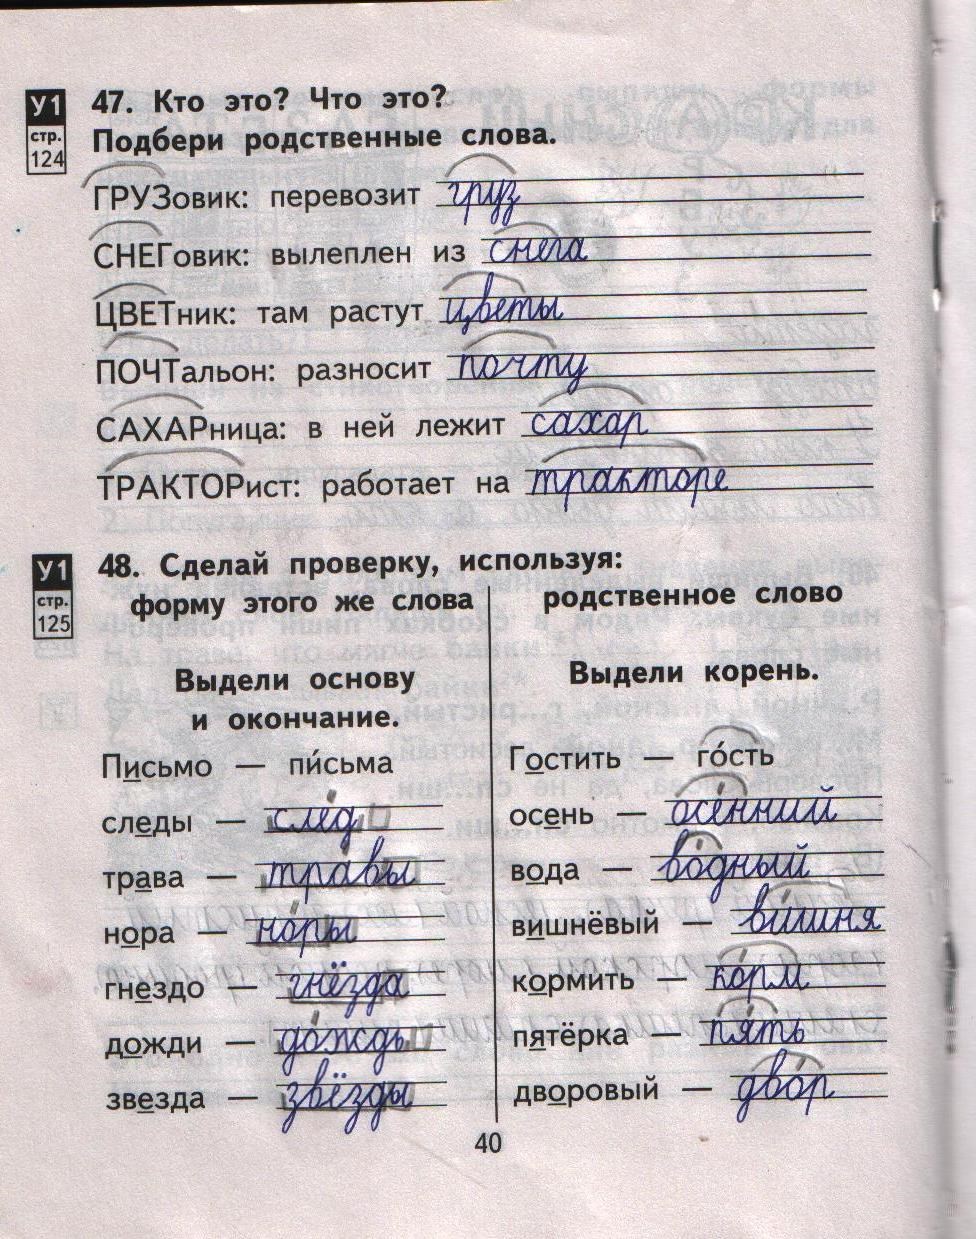 У1
стр.
124
47. Кто это? Что это?
Подбери родственные слова.
ГРУЗовик: перевозит груз
СНЕГовик: вылеплен из снега
ЦВЕТник: там растут цветы
ПОЧТальон: разносит почту
САХАРница: в ней лежит сахар
ТРАКТОРист: работает на тракторе
У1
стр.
125
48. Сделай проверку, используя:
форму этого же слова
родственное слово
Выдели основу
и окончание.
Выдели корень.
Письмо — пи́сьма
следы — след
трава — травы
нора — норы
гнездо — гнёзда
дожди — дождь
звезда — звёзды
Гостить — го́сть
осень — осенний
вода — водный
вишнёвый — вишня
кормить — корм
пятёрка — пять
дворовый — двор
40